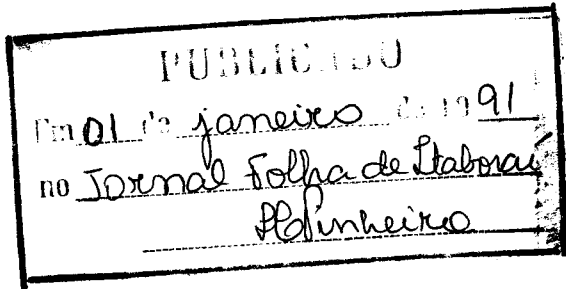 PUBLICADO
Em 01 de janeiro de 1991
no Jornal Folha de Itaboraí
Pinheiro